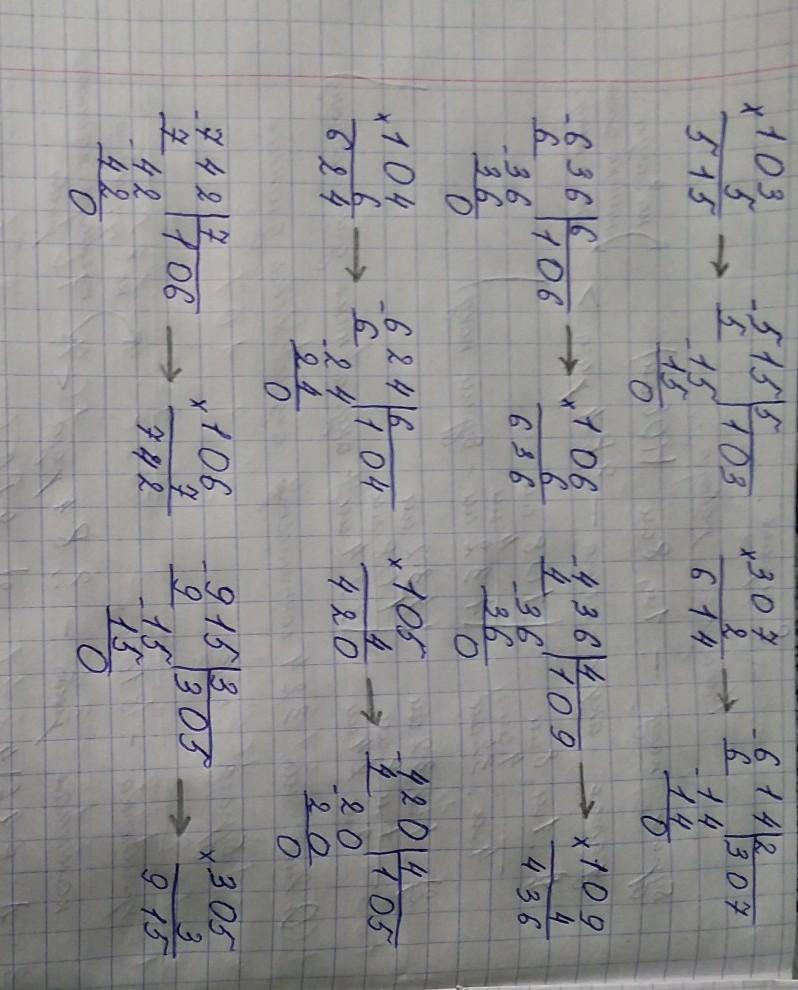 ×103 → -515|5 ×307 → -614|2
5 5 |103 2 6 |307
515 -15 614 -14
15 14
0 0
-636|6 → ×106 -436|4 → ×109
6 |106 6 4 |109 4
-36 636 -36 436
36 36
0 0
×104 → -624|6 ×105 → -420|4
6 6 |104 4 4 |105
624 -24 420 -20
24 20
0 0
-742|7 → ×106 -915|3 → ×305
7 |106 7 9 |305 3
-42 742 -15 915
42 15
0 0